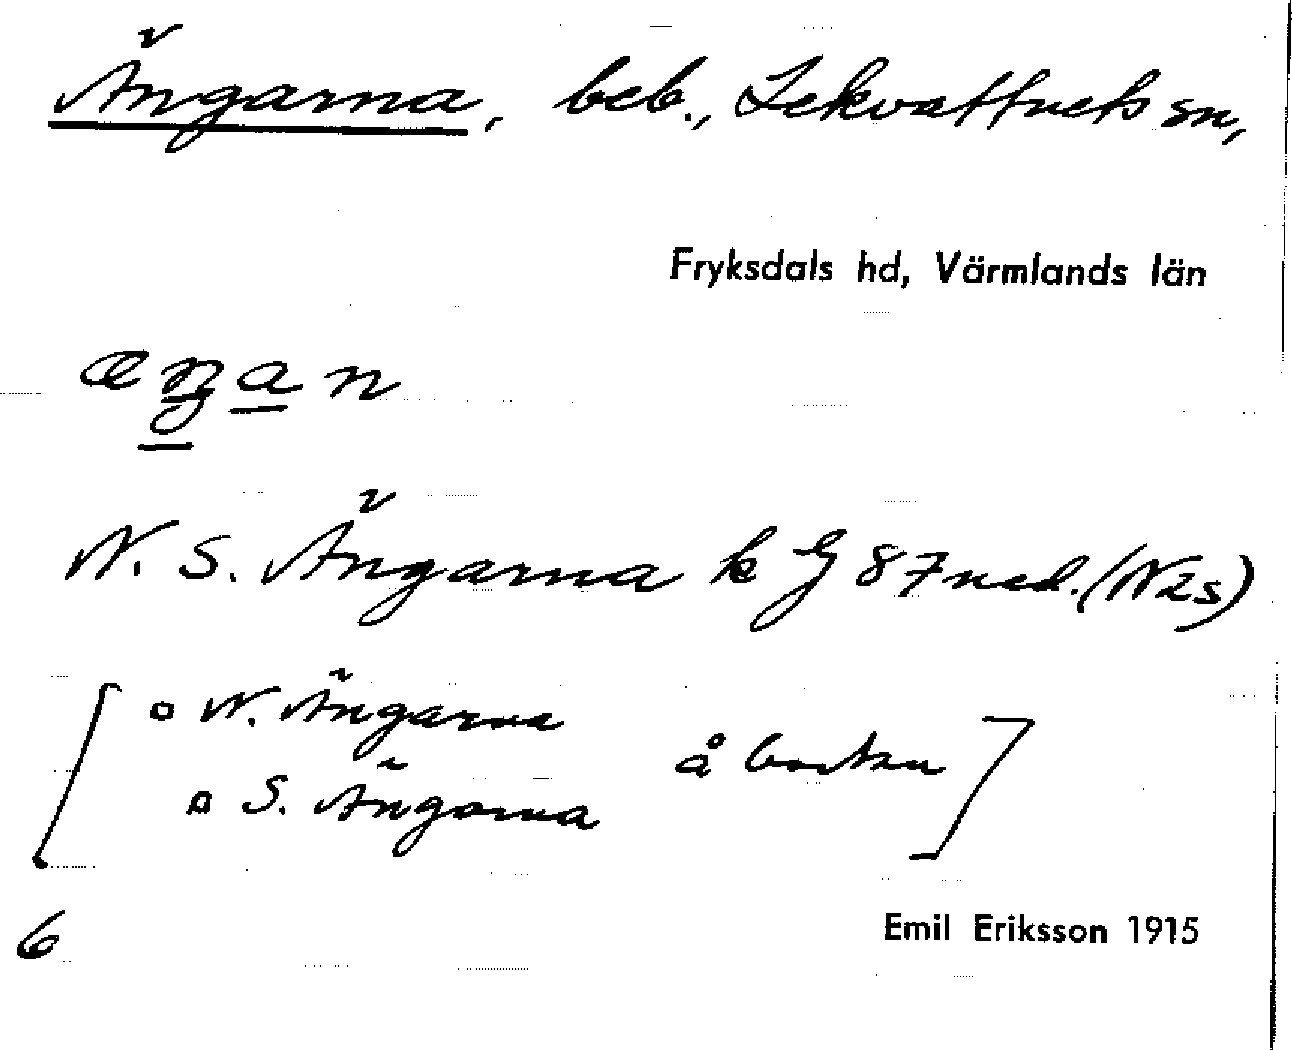 Ängarna, beb., Lekvattnets sn,
Fryksdals hd, Värmlands län
æŋan
N. S. Ängarna k G 87 ned. (N2s)
[ ▫ N. Ängarna
▫ S. Ängarna å kartan ]
6
Emil Eriksson 1915